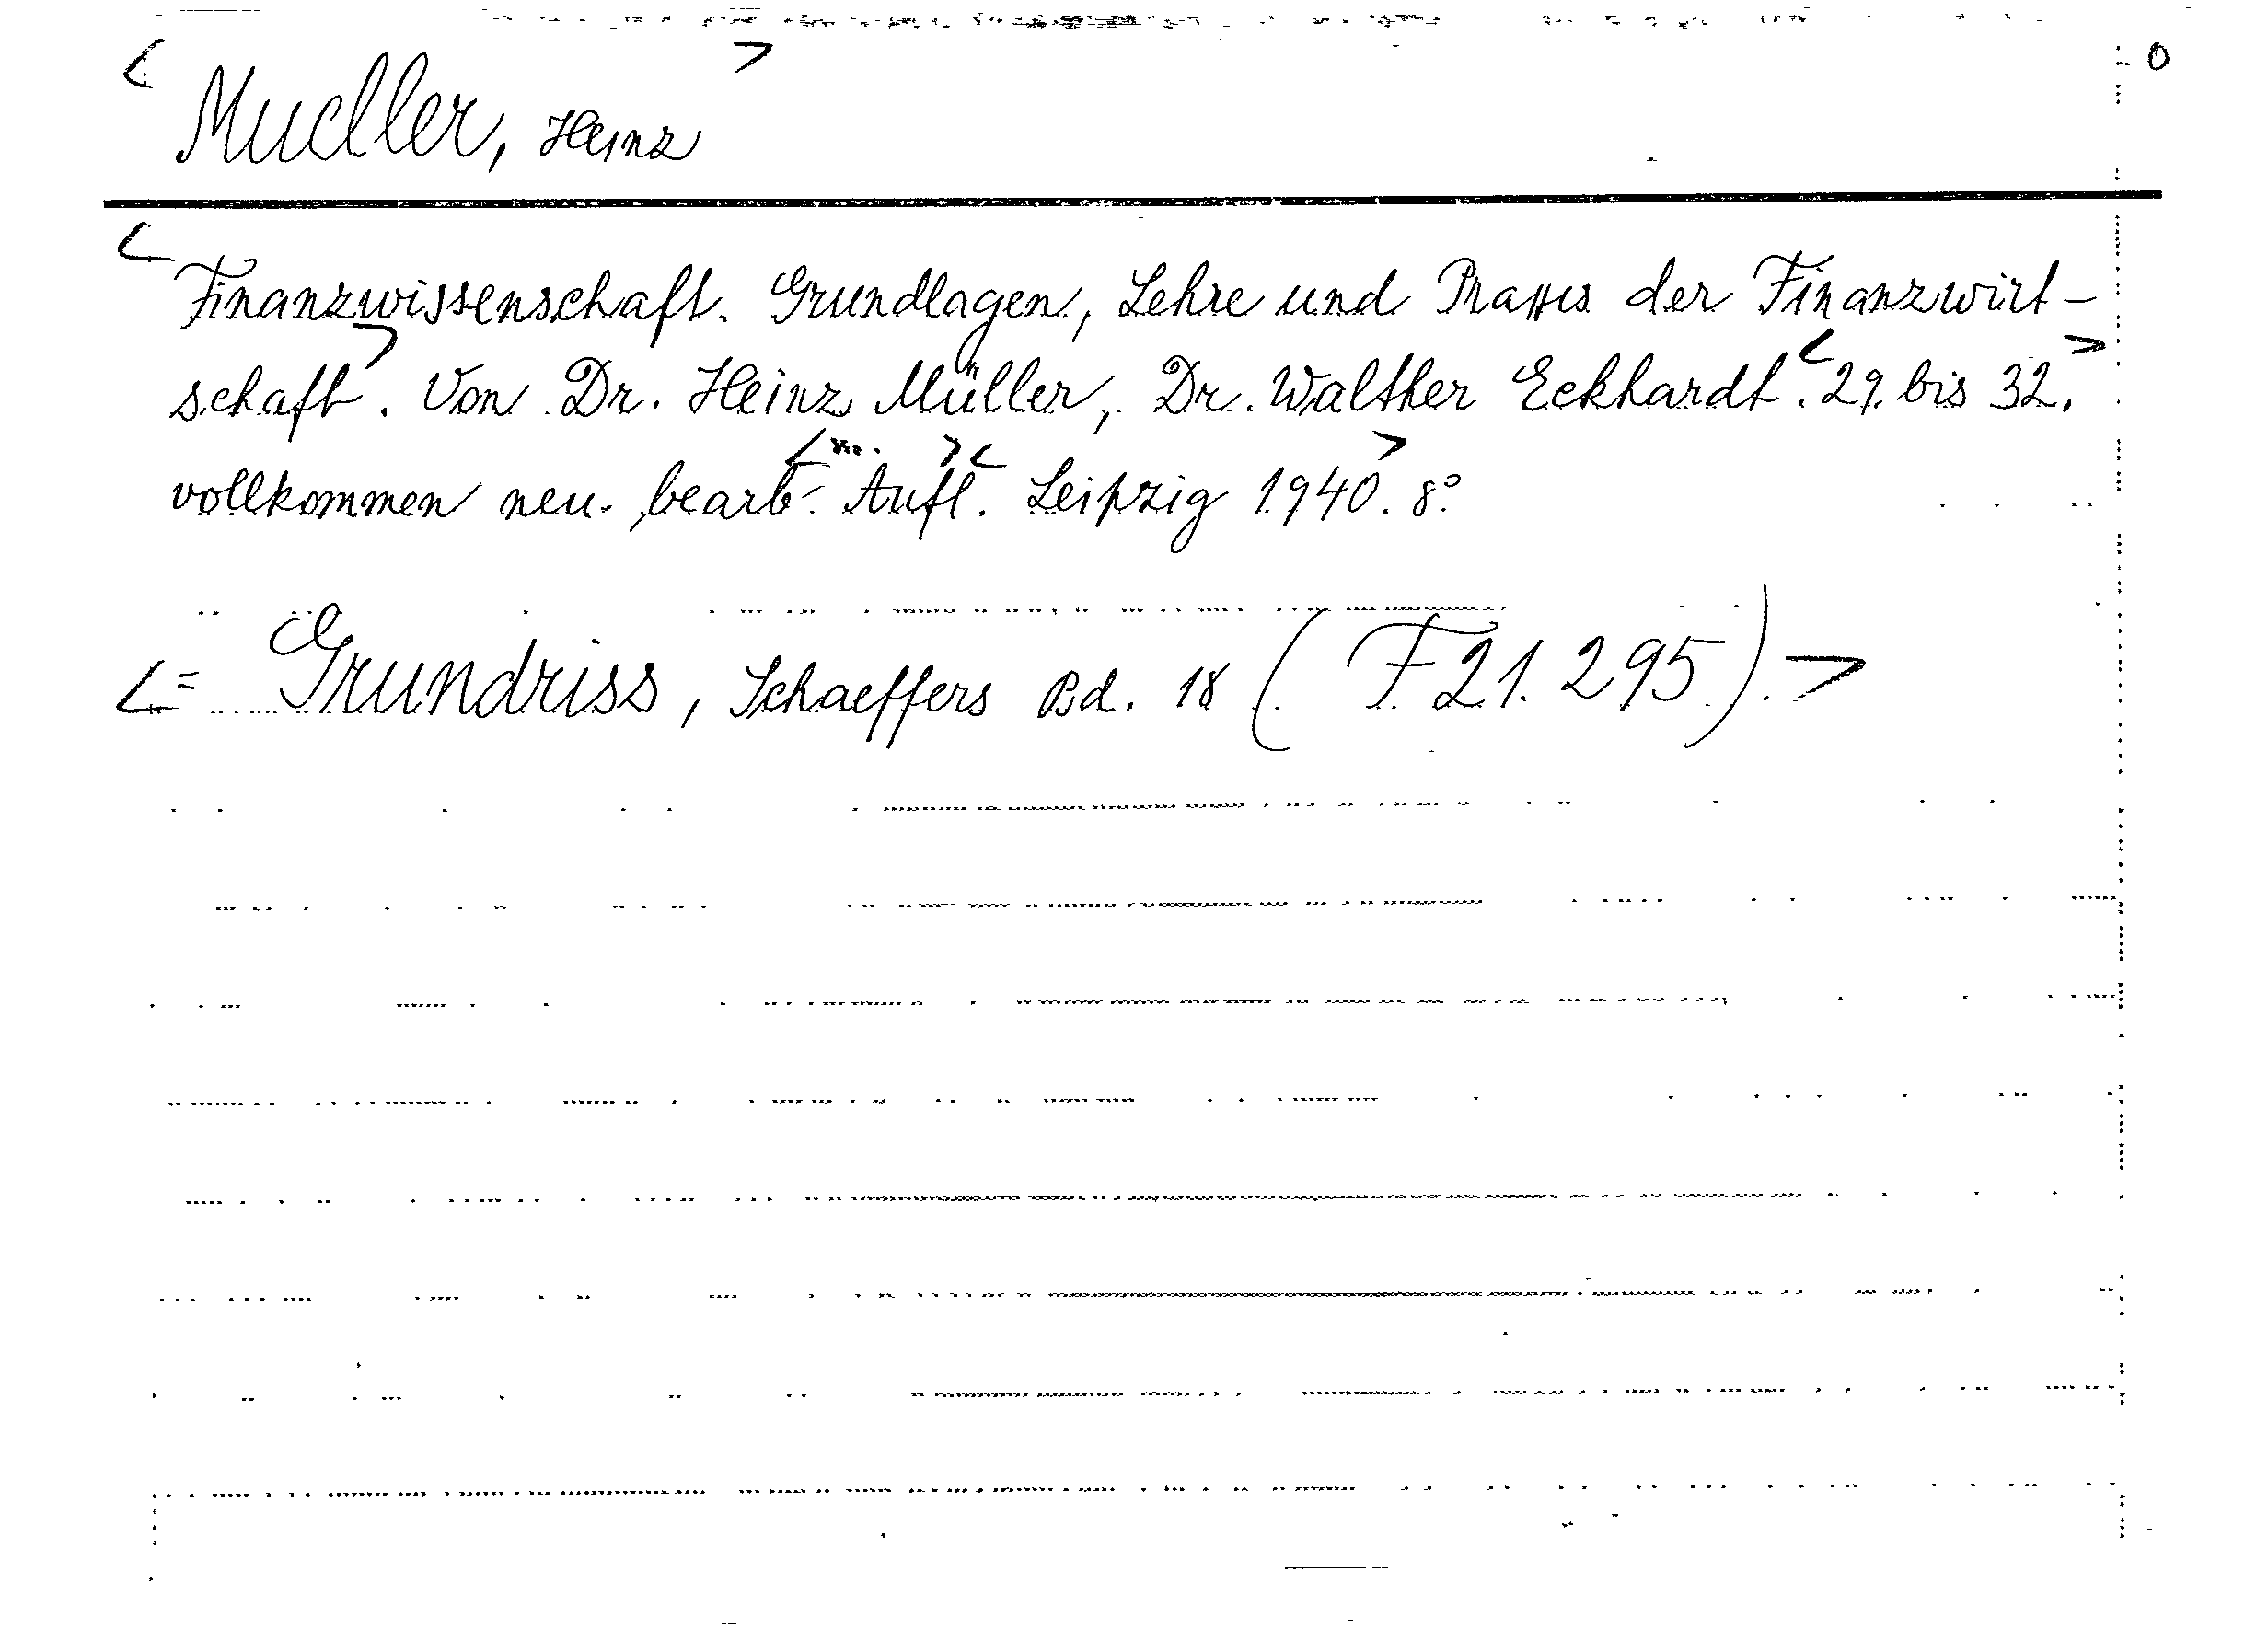 < Mueller, Heinz > 0
< Finanzwissenschaft. Grundlagen, Lehre und Praxis der Finanzwirt-
schaft >. Von Dr. Heinz Müller, Dr. Walther Eckhardt. < 29. bis 32. >
vollkommen neu. bearb. < Aufl. > < Leipzig 1940 >. 8°
< = Grundriss, Schaeffers Bd. 18 (F 21. 295). >